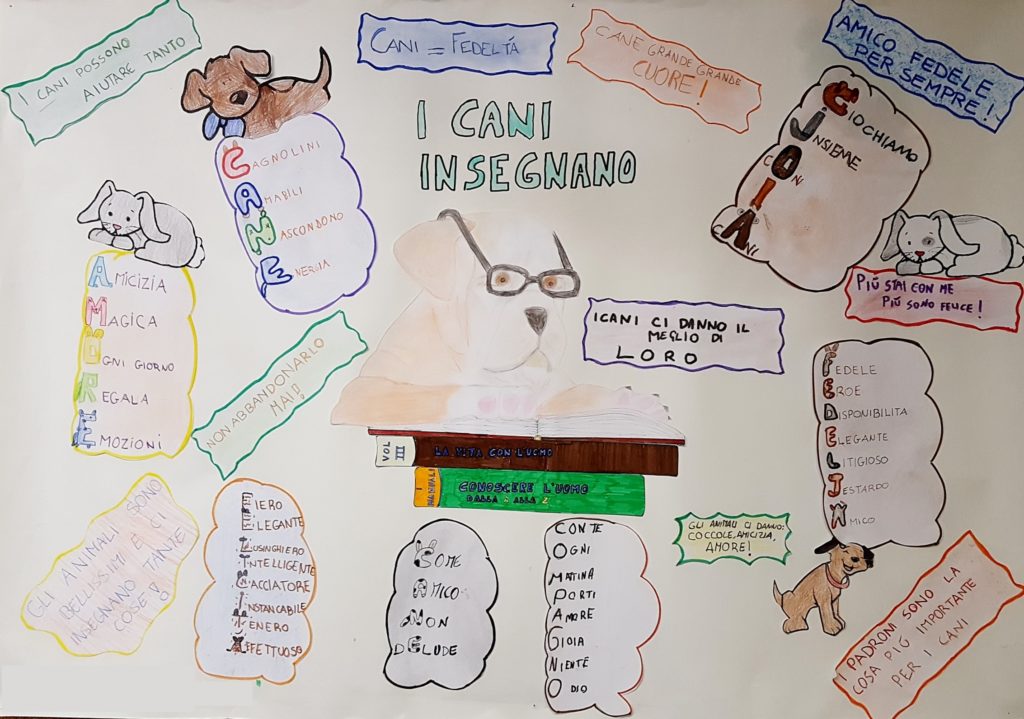 I CANI POSSONO
AIUTARE TANTO
CANI = FEDELTÁ
CANE GRANDE GRANDE
CUORE!
AMICO FEDELE
PER SEMPRE!
I CANI
INSEGNANO
CAGNOLINI
AMABILI
NASCONDONO
ENERGIA
GIOCHIAMO
INSIEME
CON
I
CANI
AMICIZIA
MAGICA
OGNI GIORNO
REGALA
EMOZIONI
PIÚ STAI CON ME
PIÚ SONO FELICE!
I CANI CI DANNO IL
MEGLIO DI
LORO
NON ABBANDONARLO
MAI!!
FEDELE
EROE
DISPONIBILITA
ELEGANTE
LITIGIOSO
TESTARDO
AMICO
VOL III
LA VITA CON L'UOMO
CONOSCERE L'UOMO
DALLA A ALLA Z
GLI ANIMALI SONO
BELLISSIMI E CI
INSEGNANO TANTE
COSE!
FIERO
ELEGANTE
LUSINGHIERO
INTELLIGENTE
CACCIATORE
INSTANCABILE
TENERO
AFFETTUOSO
COME
AMICO
NON
DELUDE
CON TE
OGNI
MATINA
PORTI
AMORE
GIOIA
NIENTE
ODIO
GLI ANIMALI CI DANNO:
COCCOLE, AMICIZIA,
AMORE!
I PADRONI SONO LA
COSA PIÚ IMPORTANTE
PER I CANI